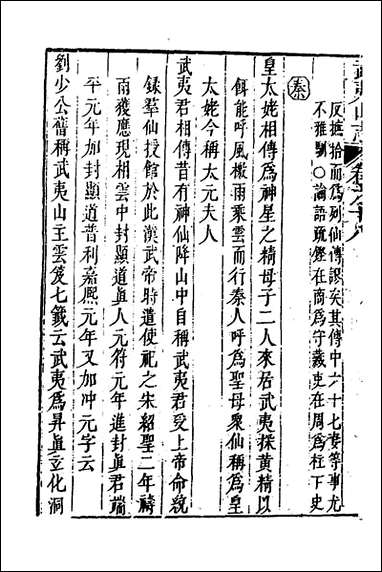 武夷山志 卷之十八
反摭拾而爲列仙傳謬矣其傳中六十七妻等事尤
不雅馴○論語疏歷在商爲守藏史在周爲柱下史
秦
皇太姥相傳爲神星之精母子二人來居武夷採黃精以
餌能呼風檄雨乘雲而行秦人呼爲聖母衆仙稱爲皇
太姥今稱太元夫人
武夷君相傳昔有神仙降山中自稱武夷君受上帝命統
錄羣仙授館於此漢武帝時遣使祀之朱紹聖二年禱
雨獲應現相雲中封顯道眞人元符元年進封眞君端
平元年加封顯道普利嘉熙元年又加冲元字云
劉少公舊稱武夷山主雲笈七籤云武夷爲昇眞立化洞